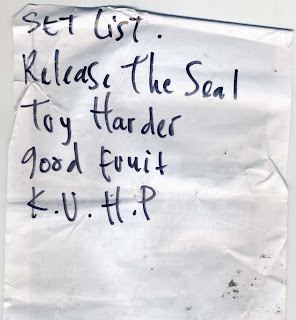 SET List.
Release The Seal
Try Harder
good fruit
K.U.H.P